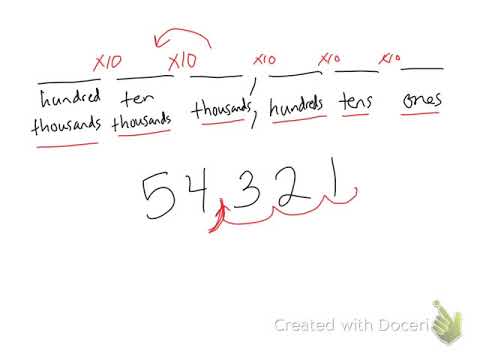 x10 x10 x10 x10 x10
hundred thousands ten thousands thousands, hundreds tens ones
54321
Created with Doceri